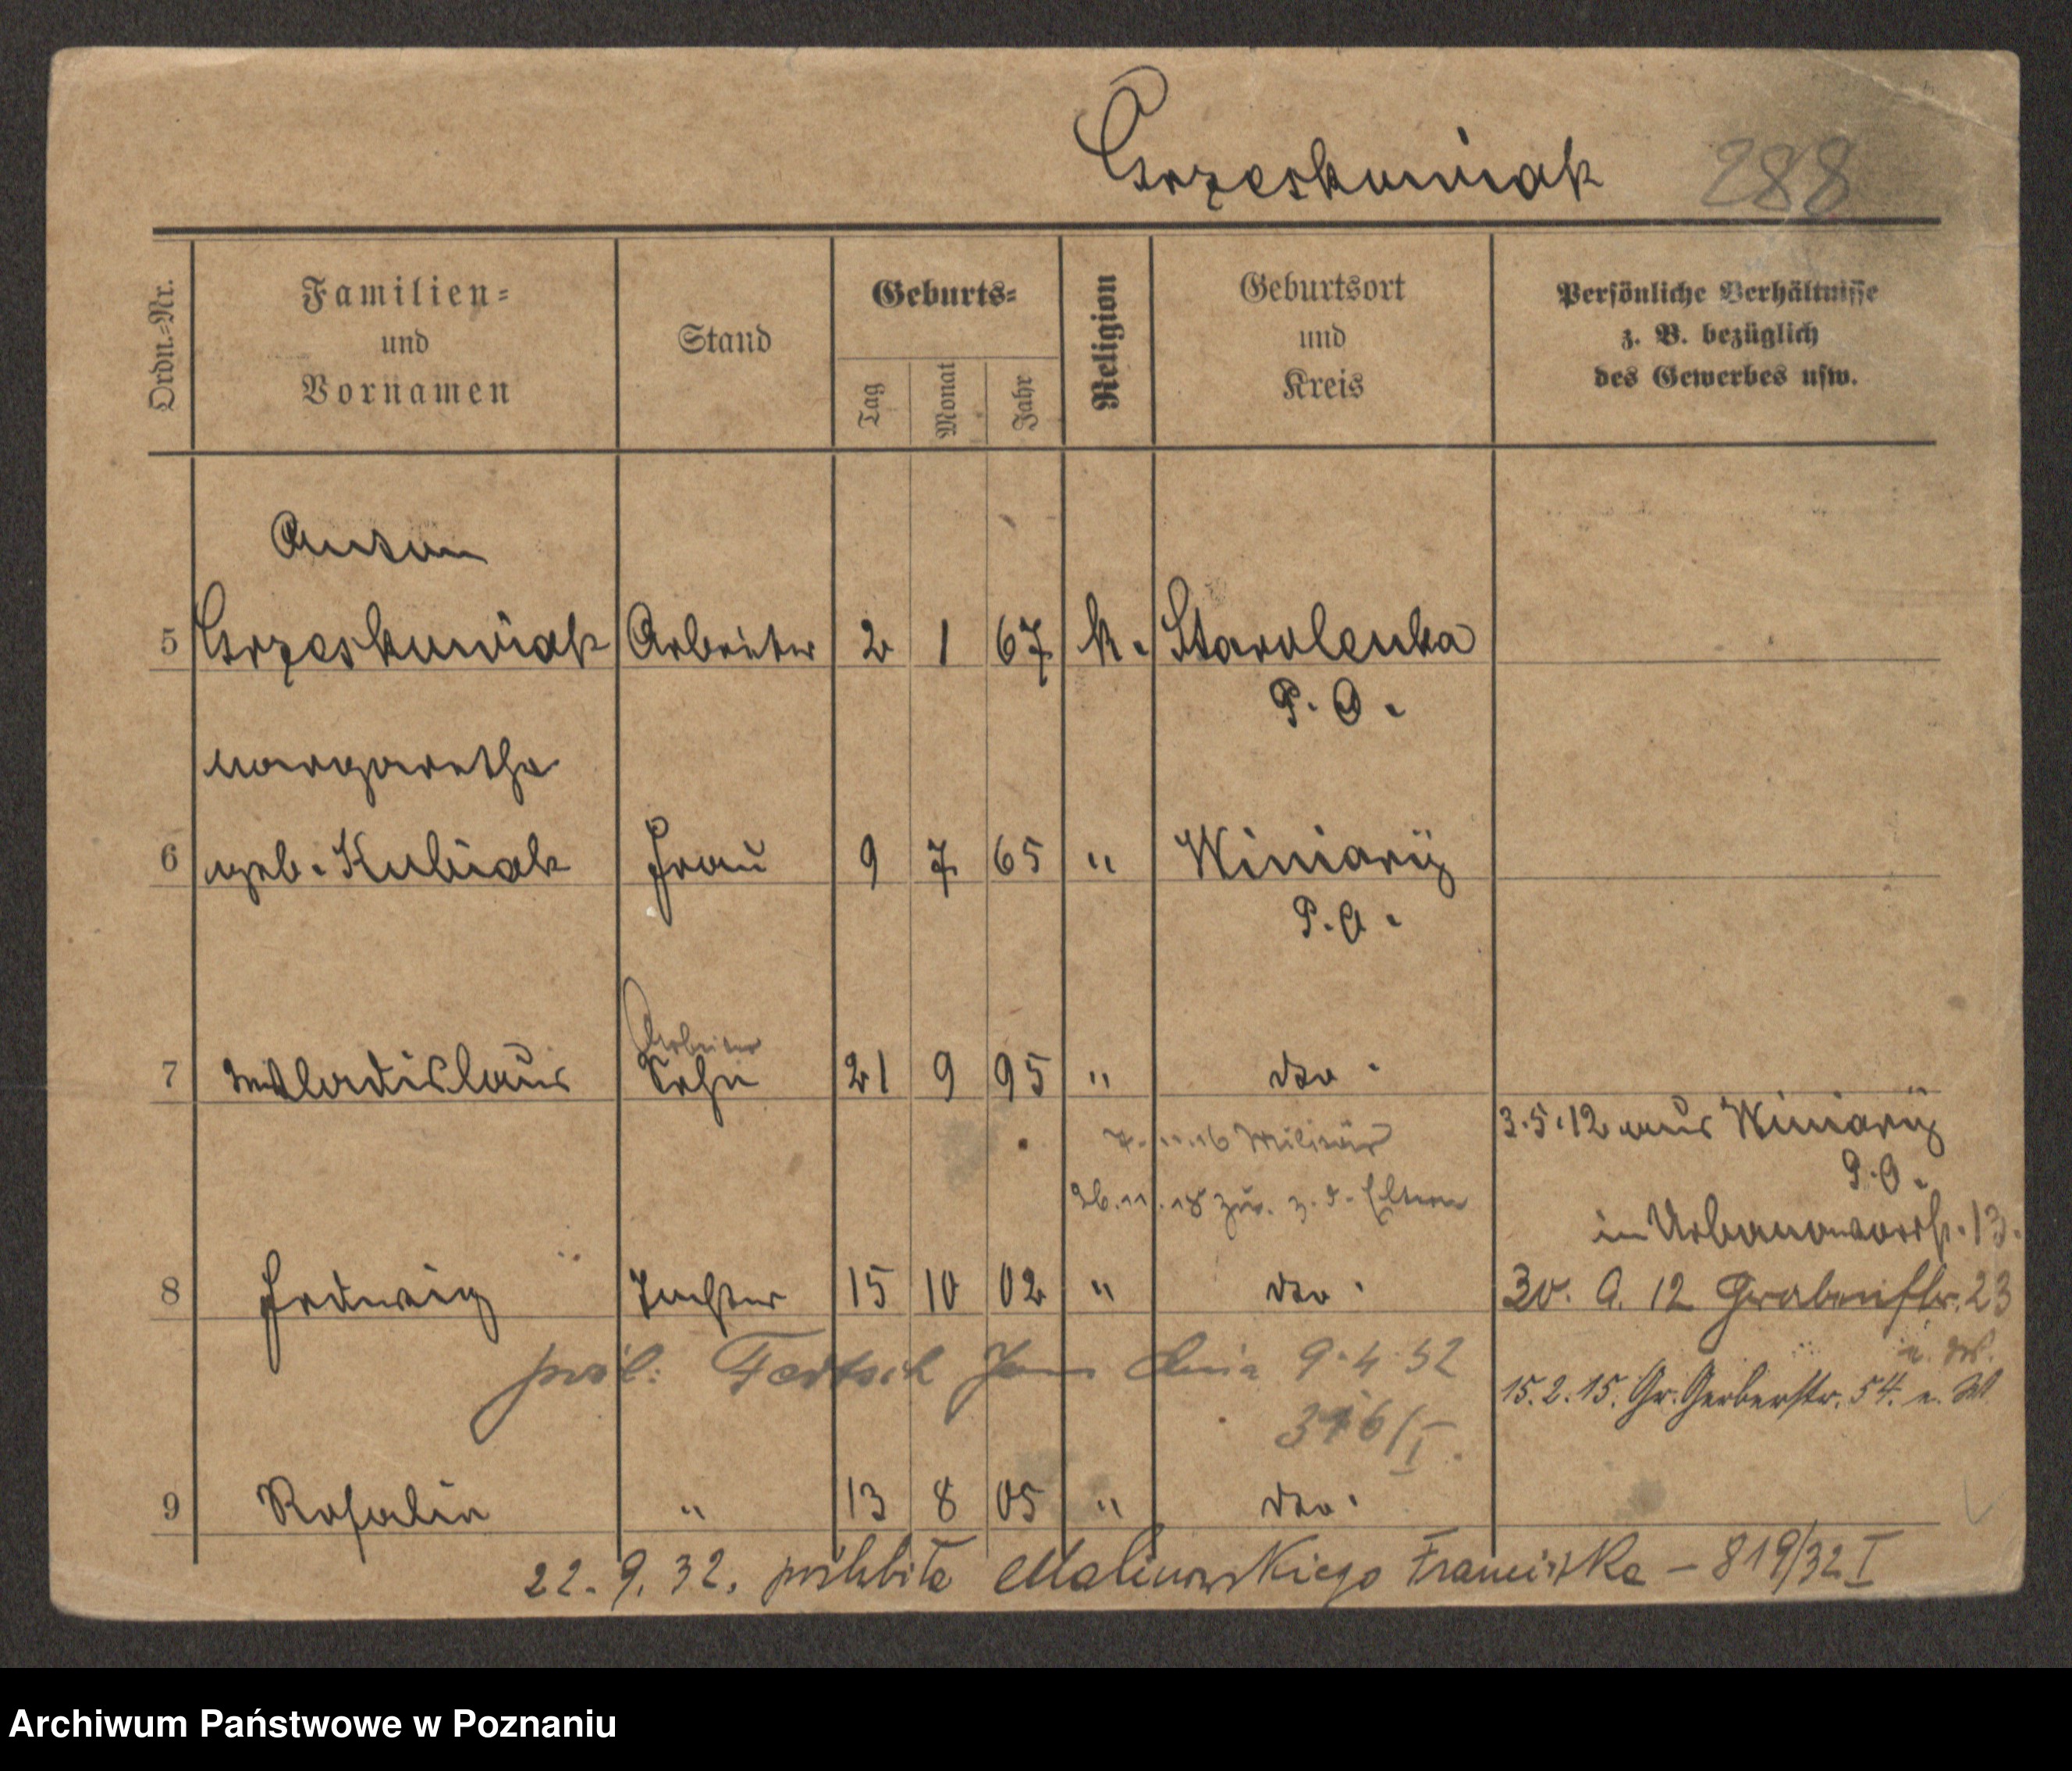 Grzeskowiak 288
Ordn.=Nr.
Familien=
und
Vornamen
Stand
Geburts=
Tag
Monat
Jahr
Religion
Geburtsort
und
Kreis
Persönliche Verhältnisse
z. B. bezüglich
des Gewerbes usw.
Anton
5 Grzeskowiak Arbeiter 2 1 67 k. Starolenka
P. O.
Margaretha
6 geb. Kubiak Frau 9 7 65 " Winiary
P. O.
Arbeiter
7 Wladislaus Sohn 21 9 95 " dto.
3.5.12 aus Winiary
7. 11. 16 Militär
P. O.
26.11.18 zur. z. d. Eltern
in Urbanowostr. 13.
8 Hedwig Tochter 15 10 02 " dto.
30. 9. 12 Grabenstr. 23
pośl. Jan dnia 9.4.32
15.2.15. Gr. Gerberstr. 54. u. W
316/I.
9 Rosalie " 13 8 05 " dto.
22. 9. 32. poślubiła Malinowskiego Franciszka – 819/32 I
Archiwum Państwowe w Poznaniu